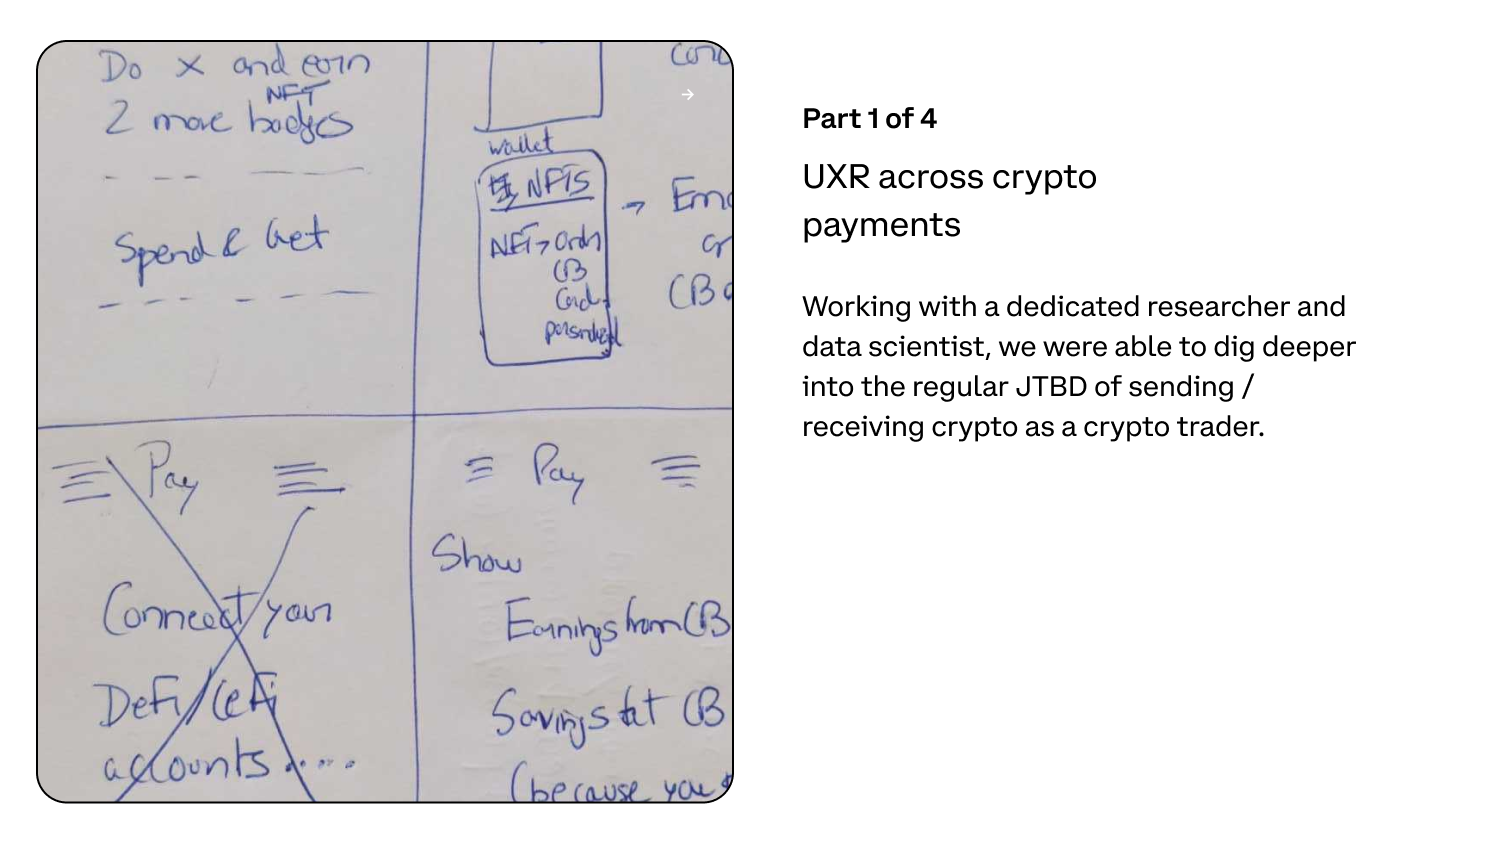 Do X and earn
NFT
2 more badges
Spend & Get
wallet
NFTS
NFT →
CB
Card
CB
Pay
Connect your
DeFi/CeFi
accounts ....
Pay
Show
Earnings from CB
Savings at CB
(because you
Part 1 of 4
UXR across crypto
payments
Working with a dedicated researcher and
data scientist, we were able to dig deeper
into the regular JTBD of sending /
receiving crypto as a crypto trader.